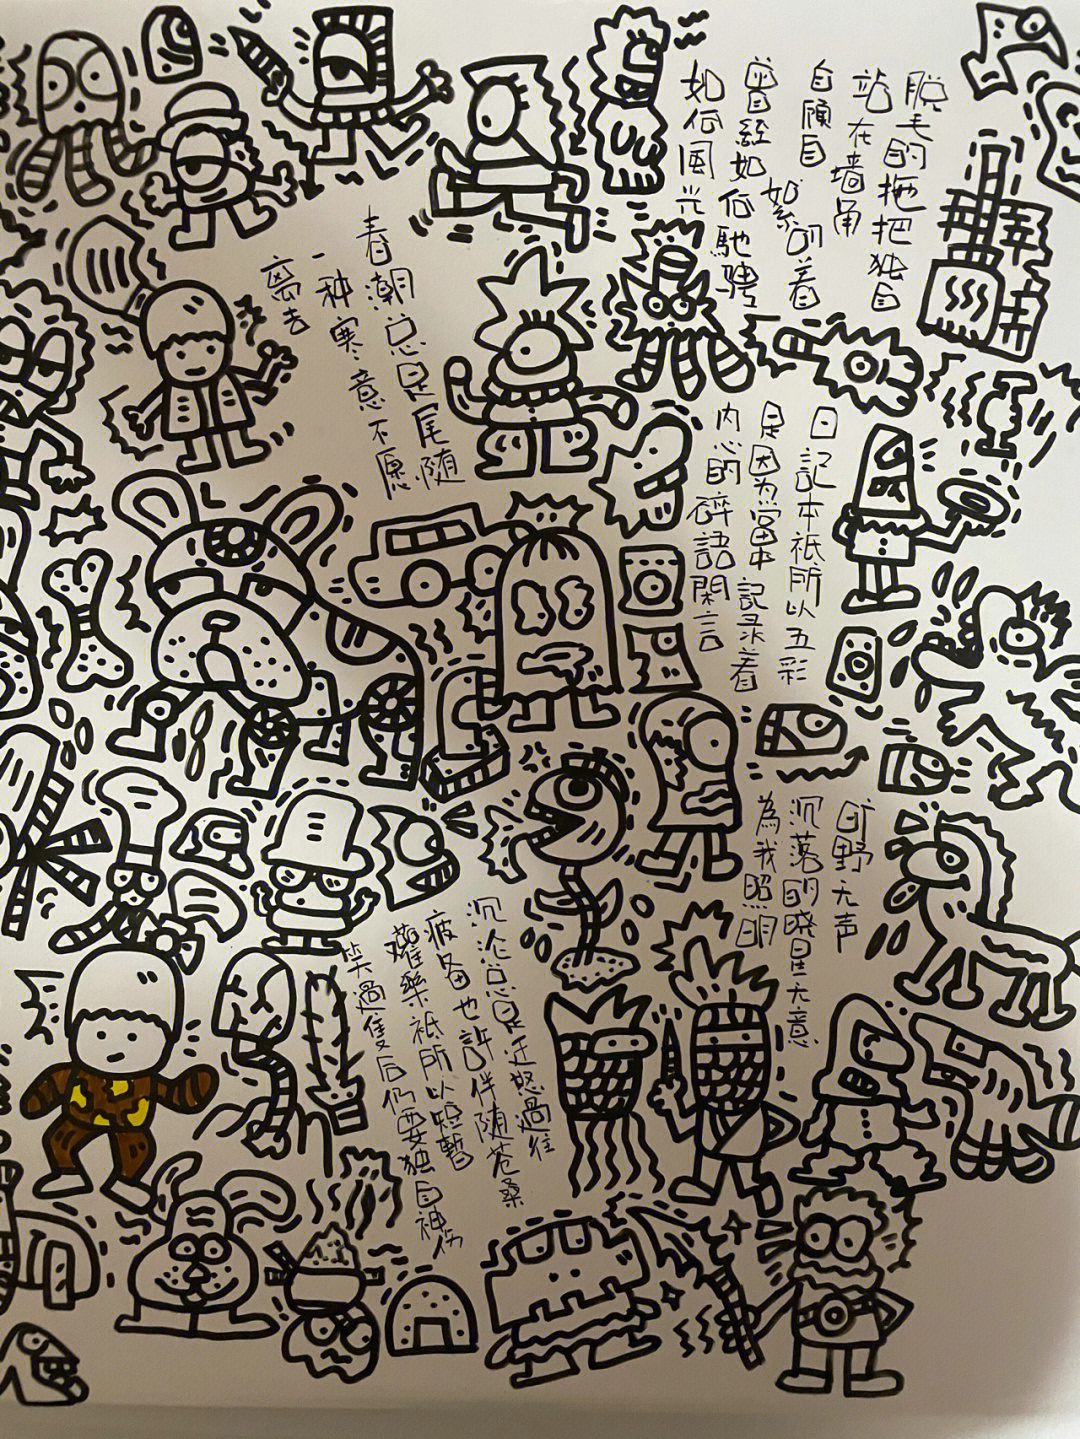 脱毛的拖把独自
站在墙角
自顾自
絮叨着
曾經如何馳騁
如何風光
春潮总是尾随
一种寒意不愿
离去
日記本祇所以五彩
是因为當中記录着
内心的碎語閑言
旷野无声
沉落的晓星无意
為我照明
沉沦总是迁怒過往
疲备也許伴随苍桑
歡樂祇所以短暫
笑過隻后仍要独自神伤